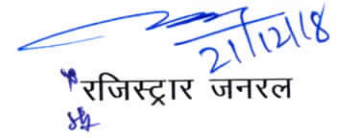 21/12/18
रजिस्ट्रार जनरल